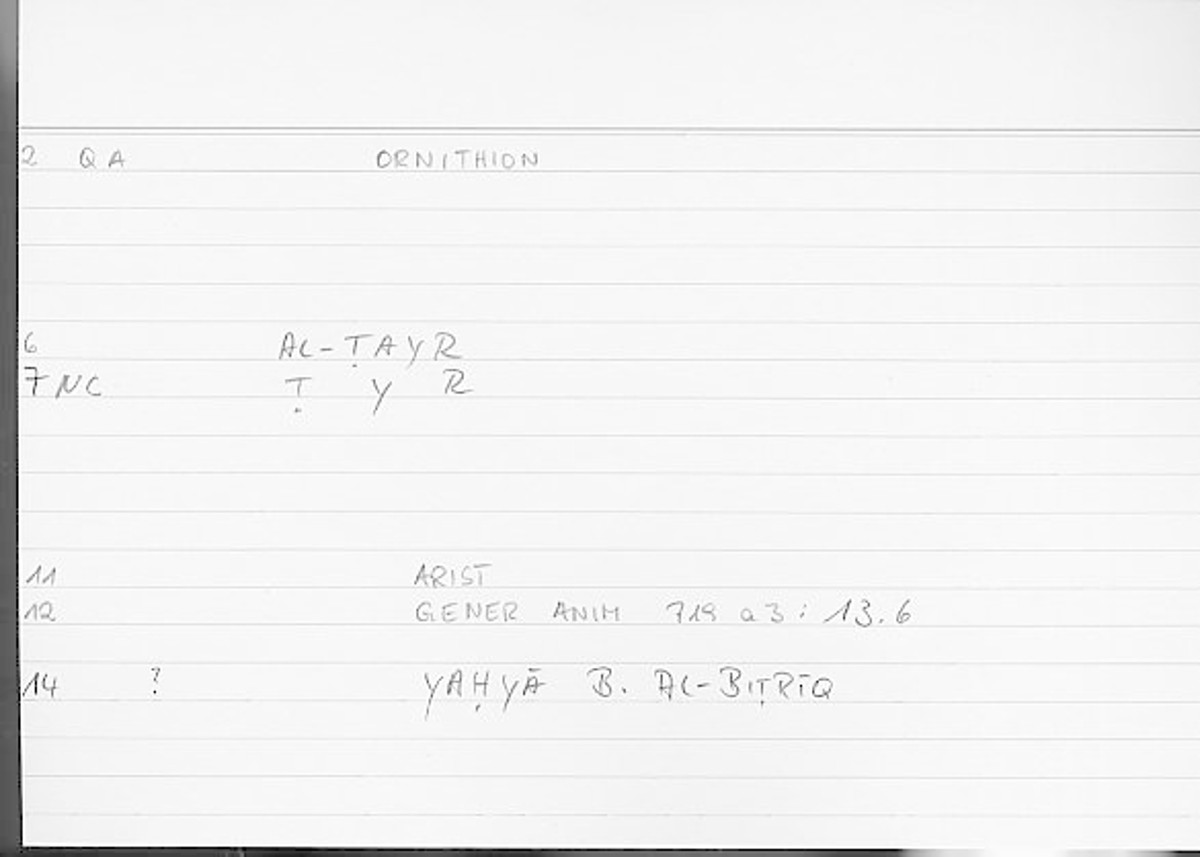 2 QA ORNITHION
6 AL-ṬAYR
7 NC Ṭ Y R
11 ARIST
12 GENER ANIM 719 a 3 : 13.6
14 ? YAḤYĀ B. AL-BIṬRĪQ